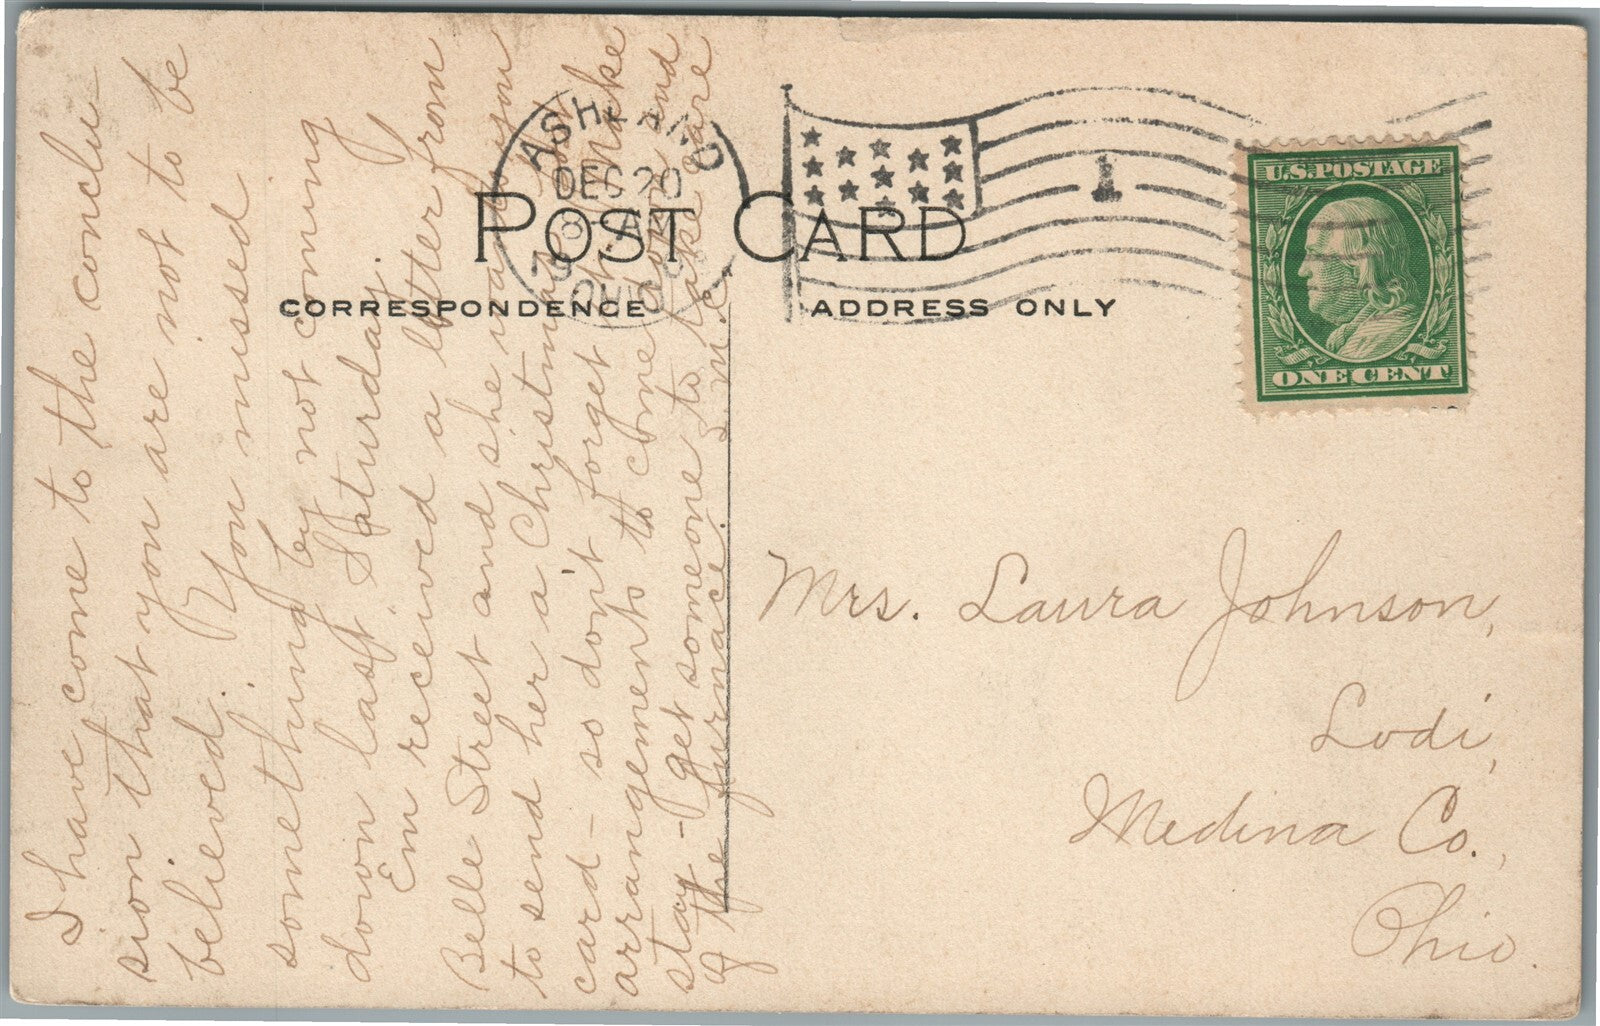 I have come to the conclu-
sion that you are not to be
believed. You missed
something by not coming
down last Saturday.
Em received a letter from
Belle Street and she wants you
to send her a Christmas post
card - so don't forget it. Make
arrangements to come down and
stay - get someone to take care
of the furnace. S.M.C.
ASHLAND
DEC 20
8 - AM
OHIO
1
U.S. POSTAGE
ONE CENT
POST CARD
CORRESPONDENCE
ADDRESS ONLY
Mrs. Laura Johnson,
Lodi,
Medina Co.,
Ohio.